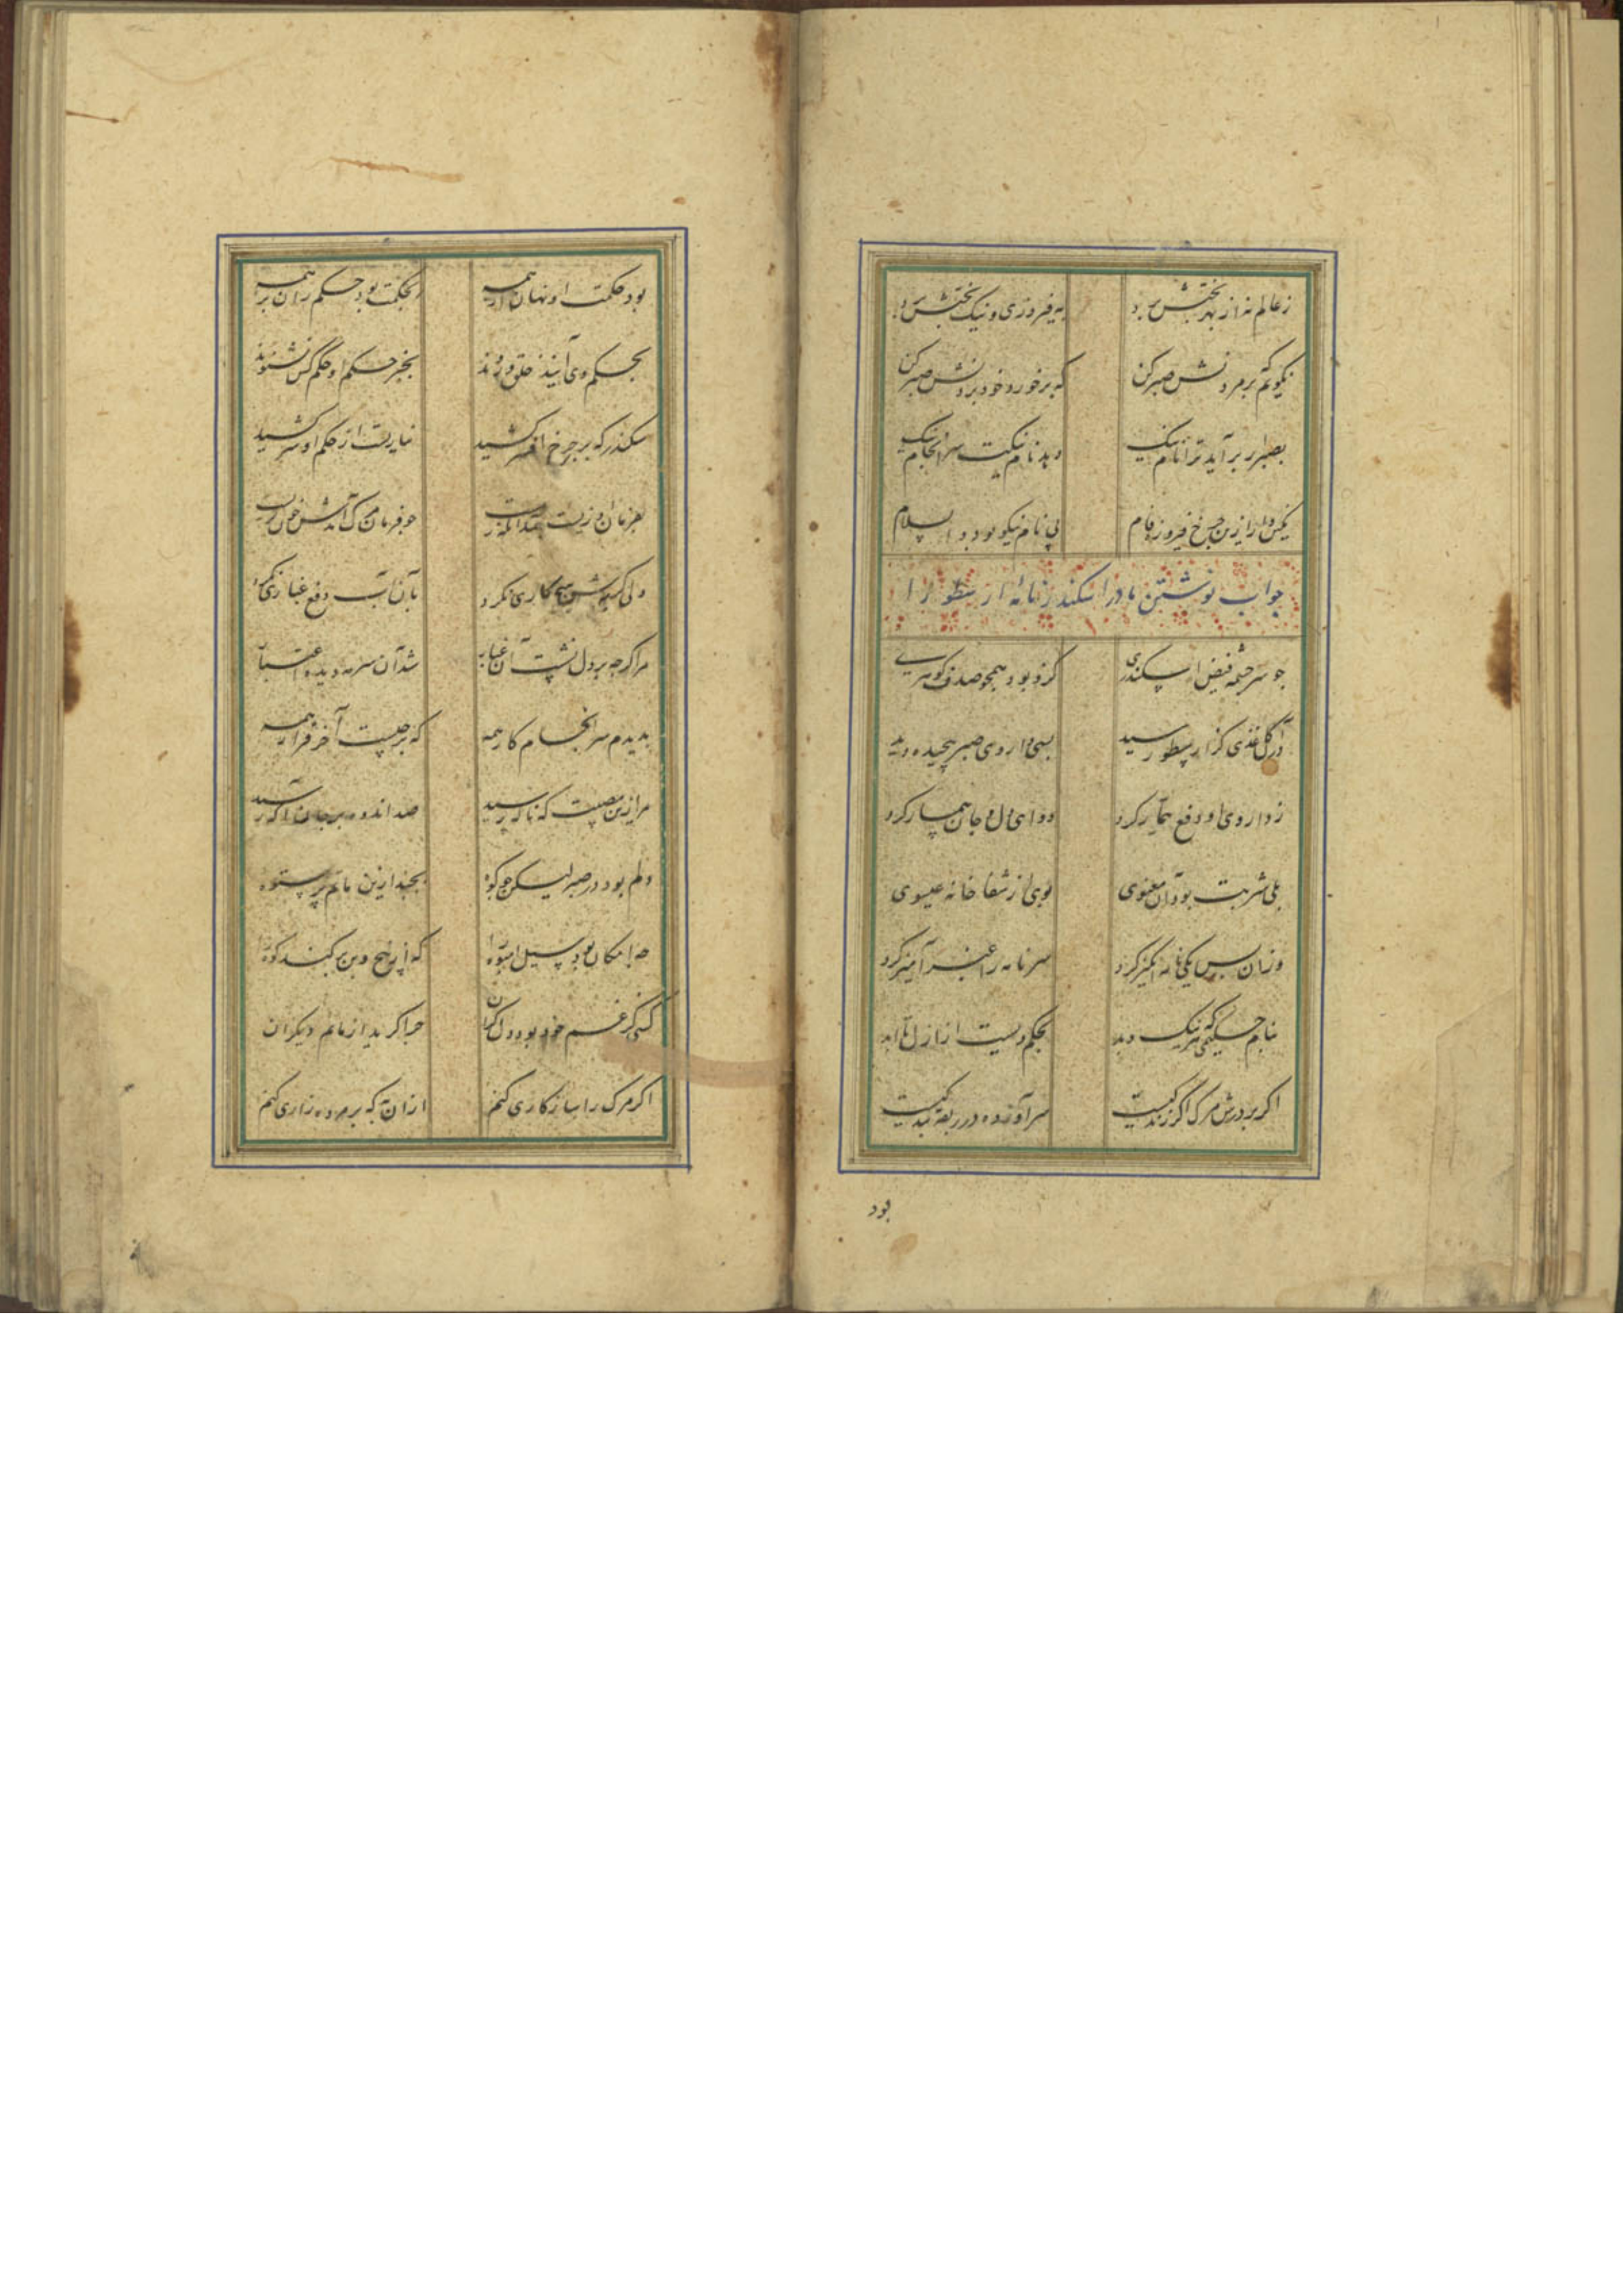 ز عالم نه از بهر بختش برد به فیروزی و نیک بختیش برد
نگویم که بر مردنش صبر کن که بر خورد و خود بردنش صبر کن
بصبر ار برآید ترا نام نیک دهد نام نیکت سرانجام نیک
نکین را ازین چرخ فیروزه فام پی نام نیکو بود والسلام
جواب نوشتن مادر اسکندر نامهٔ ارسطو را
جو سر جشمه فیض اسکندری کزو بود همجو صدف کوهری
در آن کاغذی کز ارسطو رسید بسی داروی صبر پیچیده دید
ز داروی او دفع تیمار کرد دوای دل و جان بیمار کرد
بلی شربت بود آن معنوی بوی از شفا خانه عیسوی
وزان پس یکی نامه انکیز کرد سر نامه را عنبر آمیز کرد
بنام حکیمی که هر نیک و بد بحکم ویست از ازل تا ابد
اکر بر درش مرک اکر زندکیست سر آورده در ربقه بندکیست
بود
بود حکمت او نهان از همه بحکمت بود حکم ران بر همه
بحکم وی آیند خلق و روند بجز حکم او حکم کس نشنوند
سکندر که بر چرخ افسر کشید نیارست از حکم او سر کشید
بفرمان او زیست جندانکه زیست جو فرمان مرک آمدش خون کریست
ولی کریه‌اش هیچ کاری نکرد بآن آب دفع غباری نکرد
مرا کرجه بر دل نشست آن غبار شد آن سرمه دیده اعتبار
بدیدم سرانجام کار همه که بر چیست آخر قرار همه
مرا زین مصیبت که ناکه رسید صد اندوه بر جان آکه رسید
دلم بود در صبر لیکن جو کوه بجنبد ازین ماتم پر ستوه
جه امکان بود سیل انبوه را که از بیخ و بن بر کند کوه را
کسی کز غم خود بود دل کران جرا کرید از ماتم دیکران
اکر مرک را سازکاری کنم از آن به که بر مرده زاری کنم